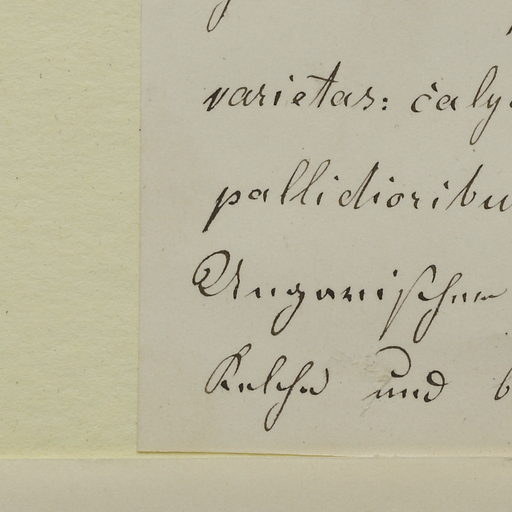 varietas: caly
pallidioribu
Ungarischen
Kelche und b